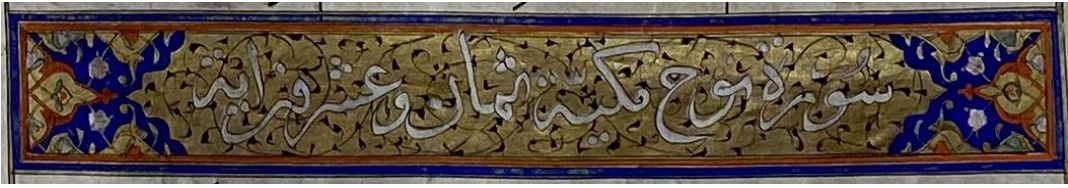 سورة نوح مكية ثمان وعشرون اية